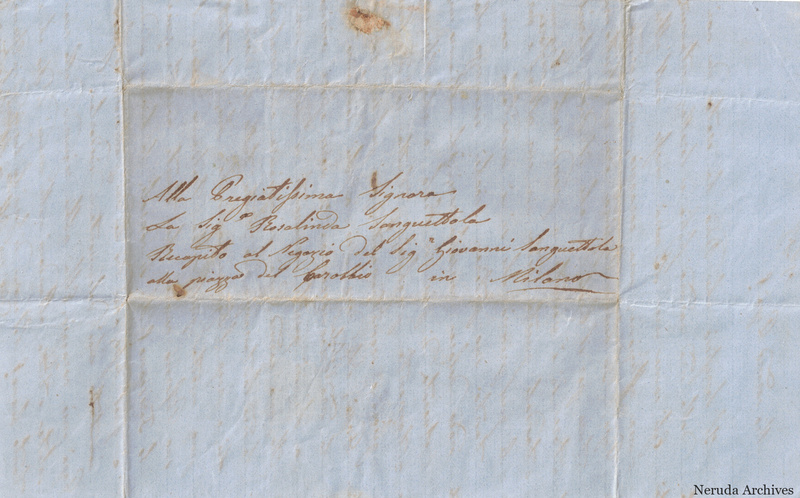 Alla Pregiatissima Signora
La Sig.ra Rosalinda Sanquettola
Recapito al Negozio del Sig.r Giovanni Sanquettola
alla piazza del Carobbio in Milano
Neruda Archives